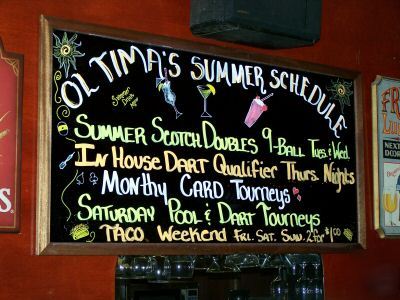 Ol TIMA'S SUMMER SCHEDULE
SUMMER SCOTCH DOUBLES 9-BALL TUES & WED.
IN HOUSE DART QUALIFIER THURS. NIGHTS
MONTHY CARD TOURNEYS
SATURDAY POOL & DART TOURNEYS
TACO WEEKEND FRI. SAT. SUN. 2 for $1.00
NEXT
DOOR